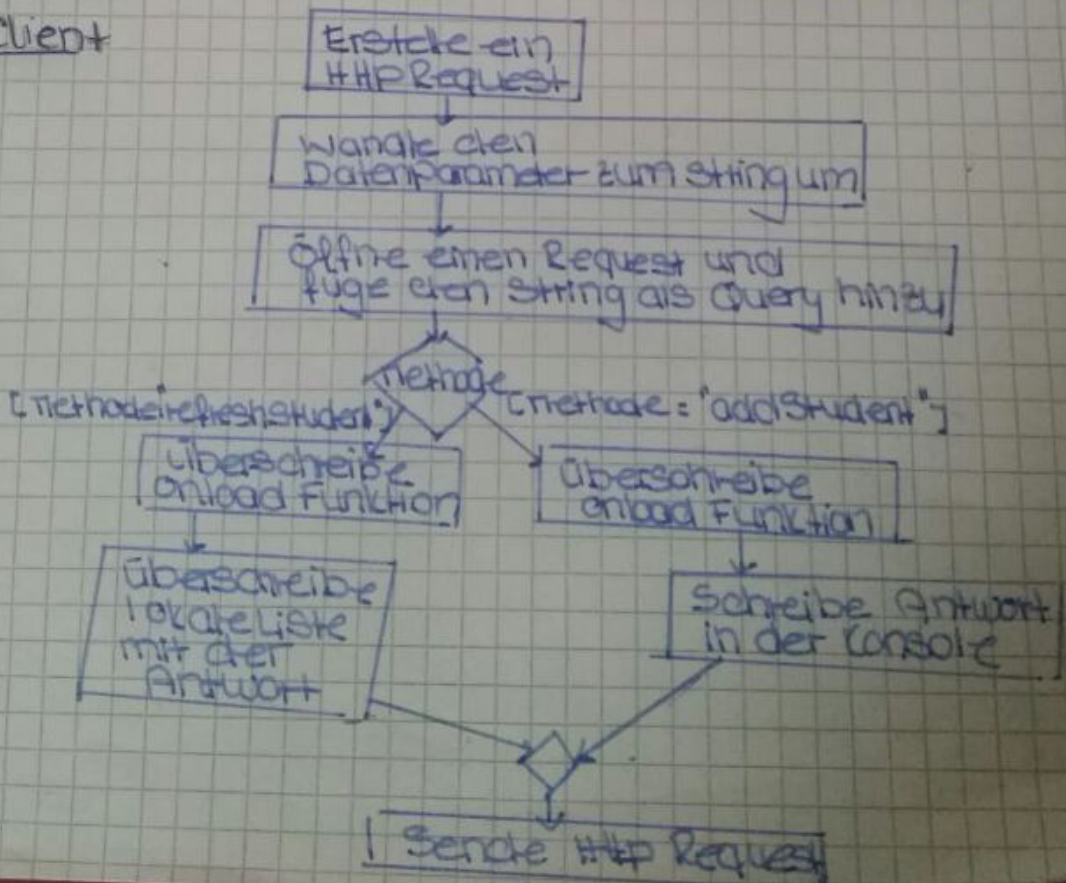 Client
Erstelle ein
Http Request
Wandle den
Datenparameter zum String um
Öffne einen Request und
füge den String als Query hinzu
methode
[methode="refreshStudent"]
[methode="addStudent"]
Überschreibe
onload Funktion
Überschreibe
onload Funktion
Überschreibe
lokale Liste
mit der
Antwort
Schreibe Antwort
in der Console
Sende Http Request